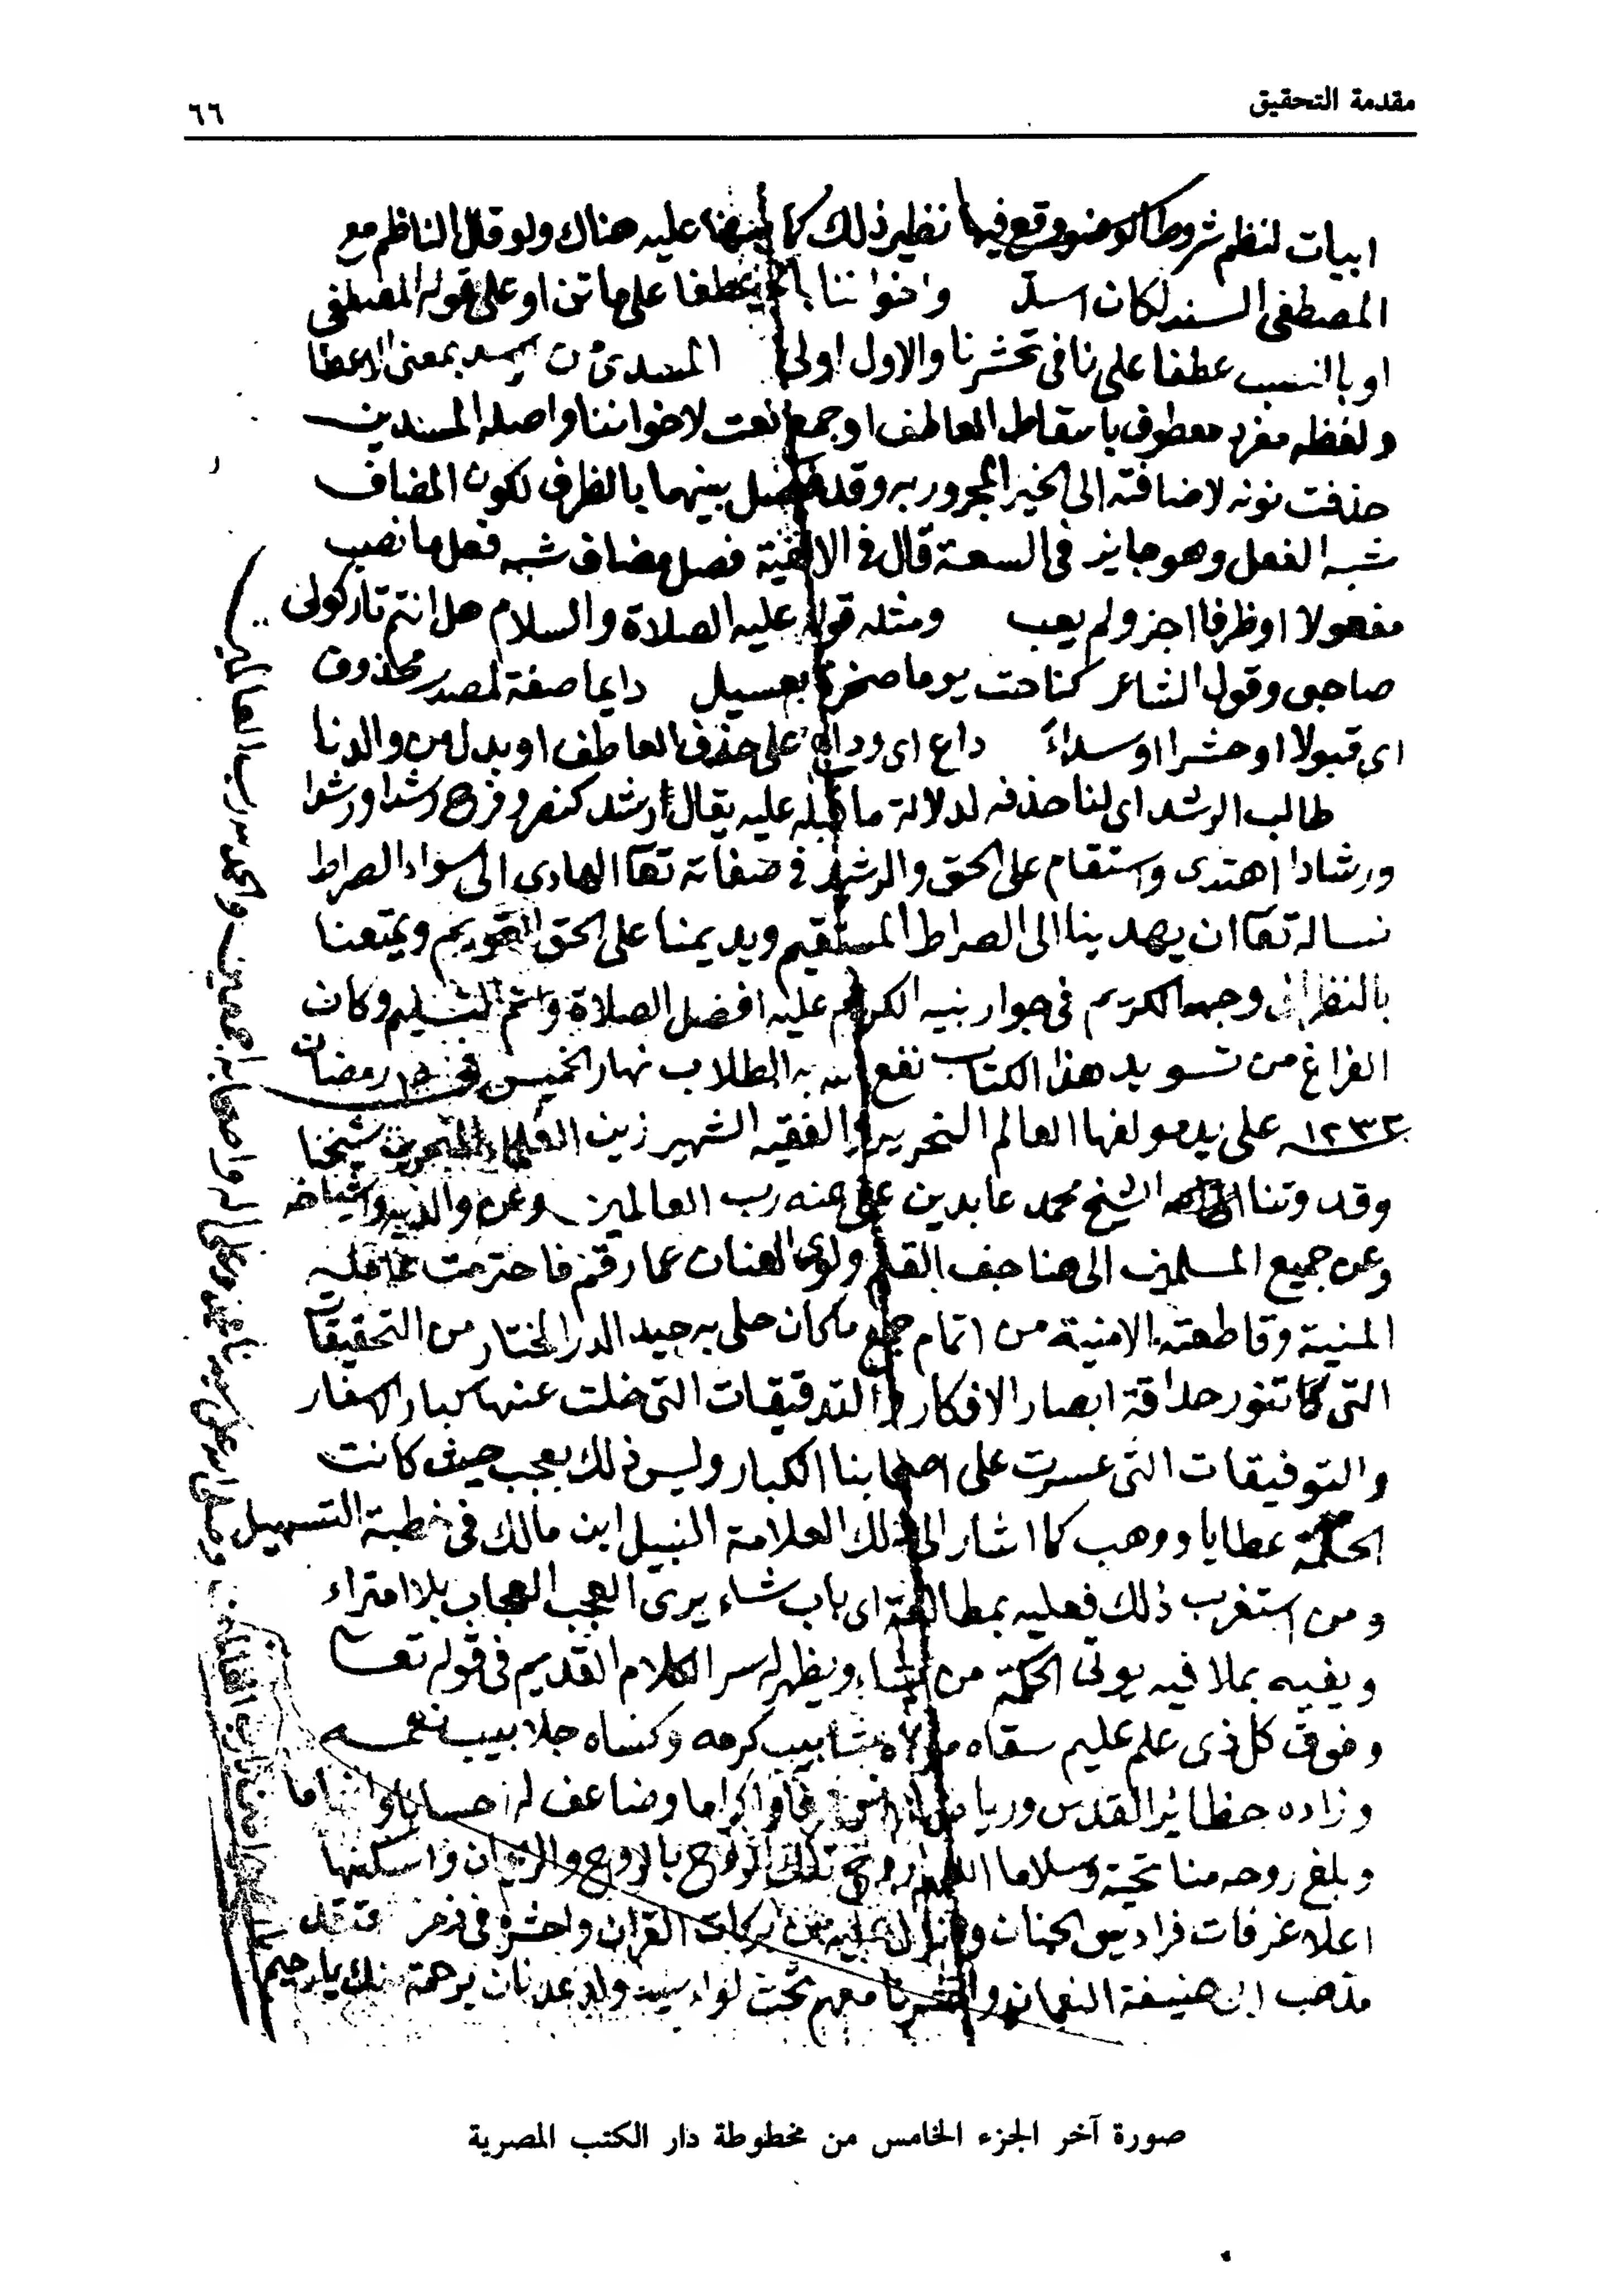 مقدمة التحقيق
٦٦
ابيات لنظم شروط الوضو وقع فيها نظير ذلك كما نبهنا عليه هناك ولو قال الناظم مع
المصطفى السند لكان اسد واخواننا بالجر عطفا على ما تن او على قوله المصطفى
او بالنصب عطفا على نا في تحشرنا والاول اولى المسدى من يسد بمعنى الاعطا
ولفظه مفرد معطوف باسقاط العاطف او جمع نعت لاخواننا واصله المسدين
حذفت نونه لاضافته الى الخير المجرور به وقد فصل بينهما بالظرف لكون المضاف
شبه الفعل وهو جايز في السعة قال في الالفية فصل مضاف شبه فعل ما نصب
مفعولا او ظرفا اجز ولم يعب ومثله قوله عليه الصلاة والسلام هل انتم تاركو لى
صاحبى وقول الشاعر كناحت يوما صخرة بعسيل دايما صفة لمصدر محذوف
اى قبولا او حشرا او سداء داع اى وداع على حذف العاطف او بدل من والدنا
طالب الرشد اى لنا حذفه لدلالة ما قبله عليه يقال رشد كنصر وفرح رشدا ورشدا
ورشادا اهتدى واستقام على الحق والرشيد في صفاته تعا الهادى الى سواء الصراط
نساله تعا ان يهدينا الى الصراط المستقيم ويديمنا على الحق القويم ويمتعنا
بالنظر الى وجهه الكريم في جوار نبيه الكريم عليه افضل الصلاة واتم التسليم وكان
الفراغ من تسويد هذا الكتاب نفع الله به الطلاب نهار الخميس في رمضان
١٢٣٢ على يد مولفها العالم النحرير والفقيه الشهير زين العلماء المتبحرين شيخنا
وقدوتنا الشيخ محمد عابدين عفى عنه رب العالمين وعن والديه واشياخه
وعن جميع المسلمين الى هنا جف القلم ولوى العنان عما رقم فاخترمت عامله
المنية وقاطعته الامنية من اتمام جمع ما كان حلى به جيد الدر المختار من التحقيقات
التى كا تنور حداقة ابصار الافكار والتدقيقات التى خلت عنها كبار الاسفار
والتوفيقات التى عسرت على اصحابنا الكبار وليس ذلك بعجب حيث كانت
الحكمة عطايا ووهب كما اشار الى ذلك العلامة النبيل ابن مالك في خطبة التسهيل
ومن استغرب ذلك فعليه بمطالعة اى باب شاء يرى العجب العجاب بلا امتراء
ويفيه بملا فيه يوتى الحكمة من يشاء ويظهر له سر الكلام القديم في قوله تعا
وفوق كل ذى علم عليم سقاه مولاه شابيب كرمه وكساه جلابيب نعمه
وزاده حظائر القدس ورياض الانس واكراما وضاعف له احسانا وانعاما
وبلغ روحه منا تحية وسلاما اللهم روح تلك الروح بالروح والريحان واسكنها
اعلا غرفات فراديس الجنان وانزل عليه من بركات القران واحشره في زمرة مقلد
مذهب ابى حنيفة النعمان واحشرنا معهم تحت لواء سيد ولد عدنان برحمة منك يا رحيم
وصلى الله على سيدنا محمد وعلى اله واصحابه اجمعين والحمد لله رب العالمين
صورة آخر الجزء الخامس من مخطوطة دار الكتب المصرية